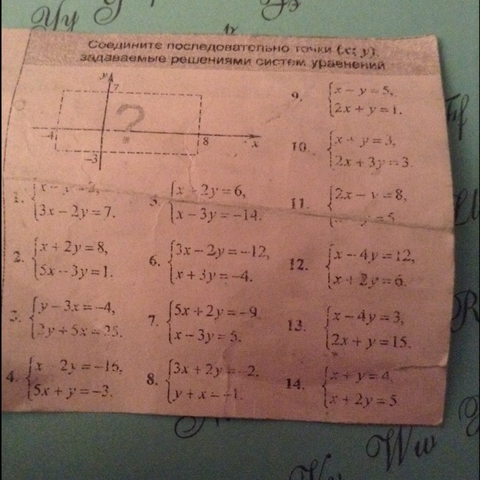 Уу
Соедините последовательно точки (x; y),
задаваемые решениями систем уравнений
y
7
?
-4
8
x
-3
1.
3x - 2y = 7.
2. x + 2y = 8,
5x - 3y = 1.
3. y - 3x = -4,
2y + 5x = 25.
4. x 2y = -16,
5x + y = -3.
5. 2y = 6,
x - 3y = -14.
6. 3x - 2y = -12,
x + 3y = -4.
7. 5x + 2y = -9
x - 3y = 5.
8. 3x + 2y = -2,
y + x = -1.
9. x - y = 5,
2x + y = 1.
10. x + y = 3,
2x + 3y = 3.
11. 2x - y = 8,
= 5.
12. x - 4y = 12,
x + 2y = 6.
13. x - 4y = 3,
2x + y = 15.
14. x + y = 4,
x + 2y = 5
Ww